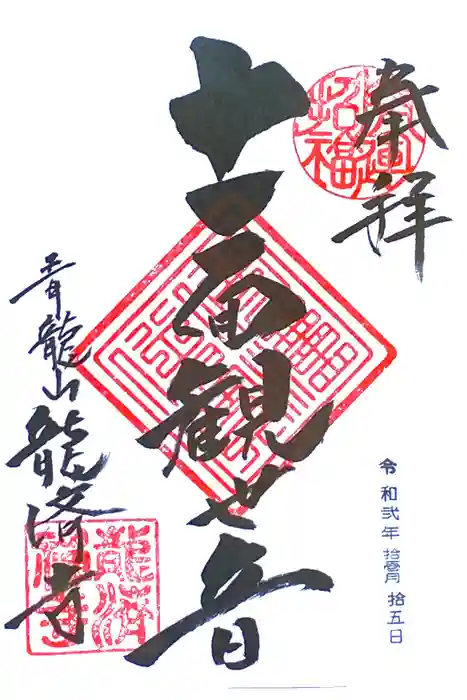 奉拝
十一面観世音
令和弐年 拾壱月 拾五日
青龍山 龍済寺
招福
龍済禅寺